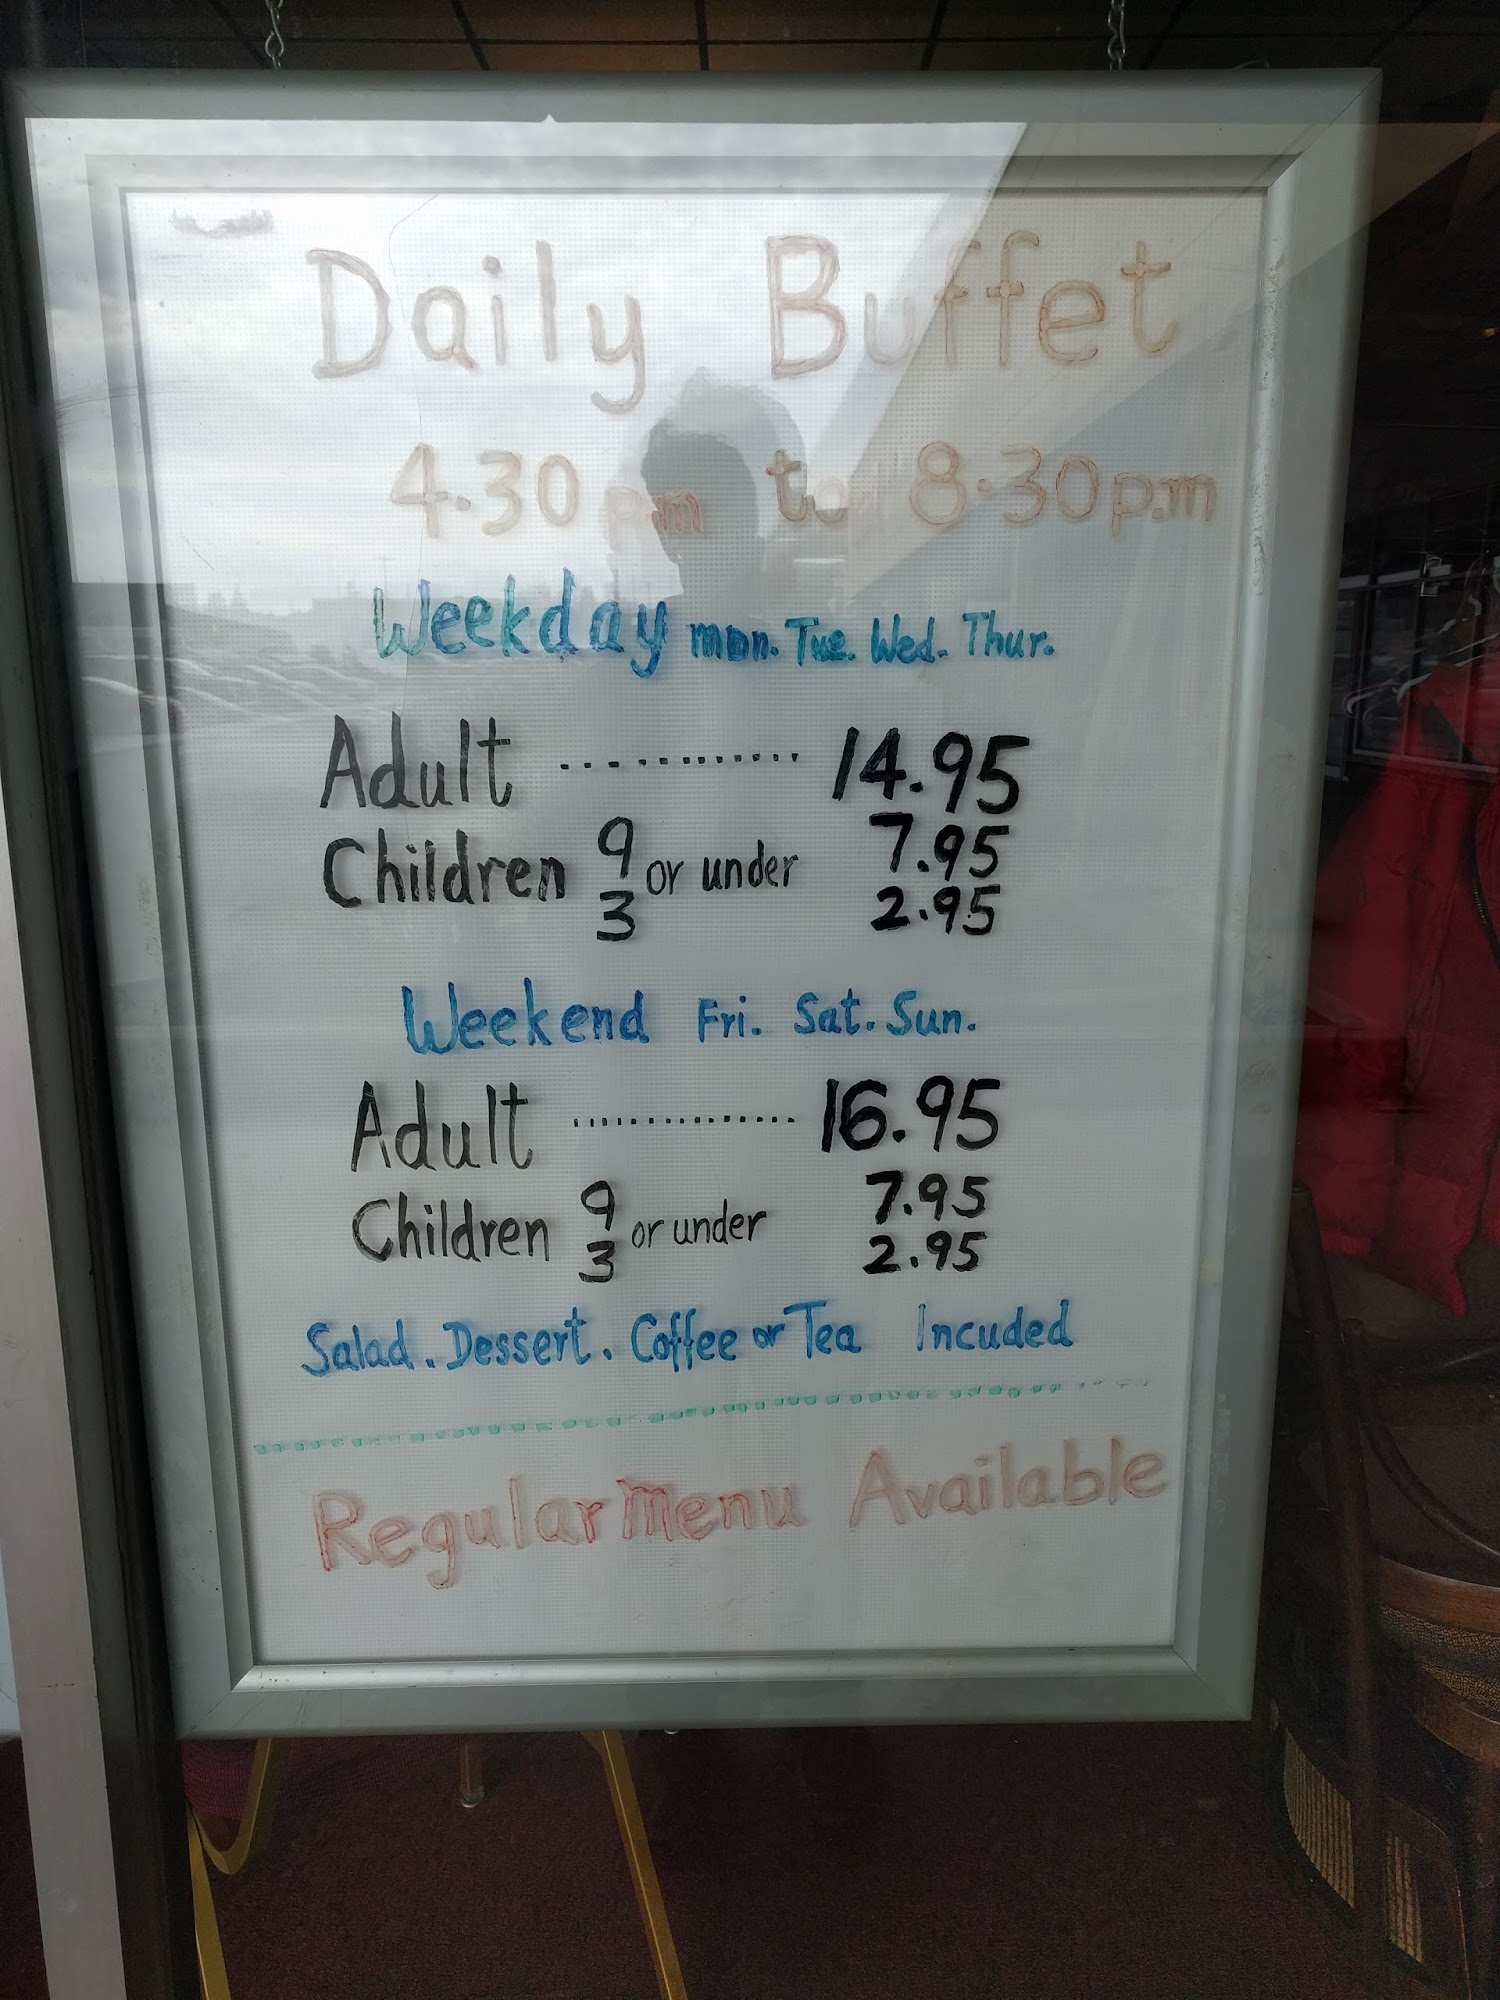 Daily Buffet
4.30 pm to 8.30 p.m
Weekday mon. Tue. Wed. Thur.
Adult ............. 14.95
Children 9 or under 7.95
3 2.95
Weekend Fri. Sat. Sun.
Adult ............... 16.95
Children 9 or under 7.95
3 2.95
Salad. Dessert. Coffee or Tea Incuded
Regular menu Available